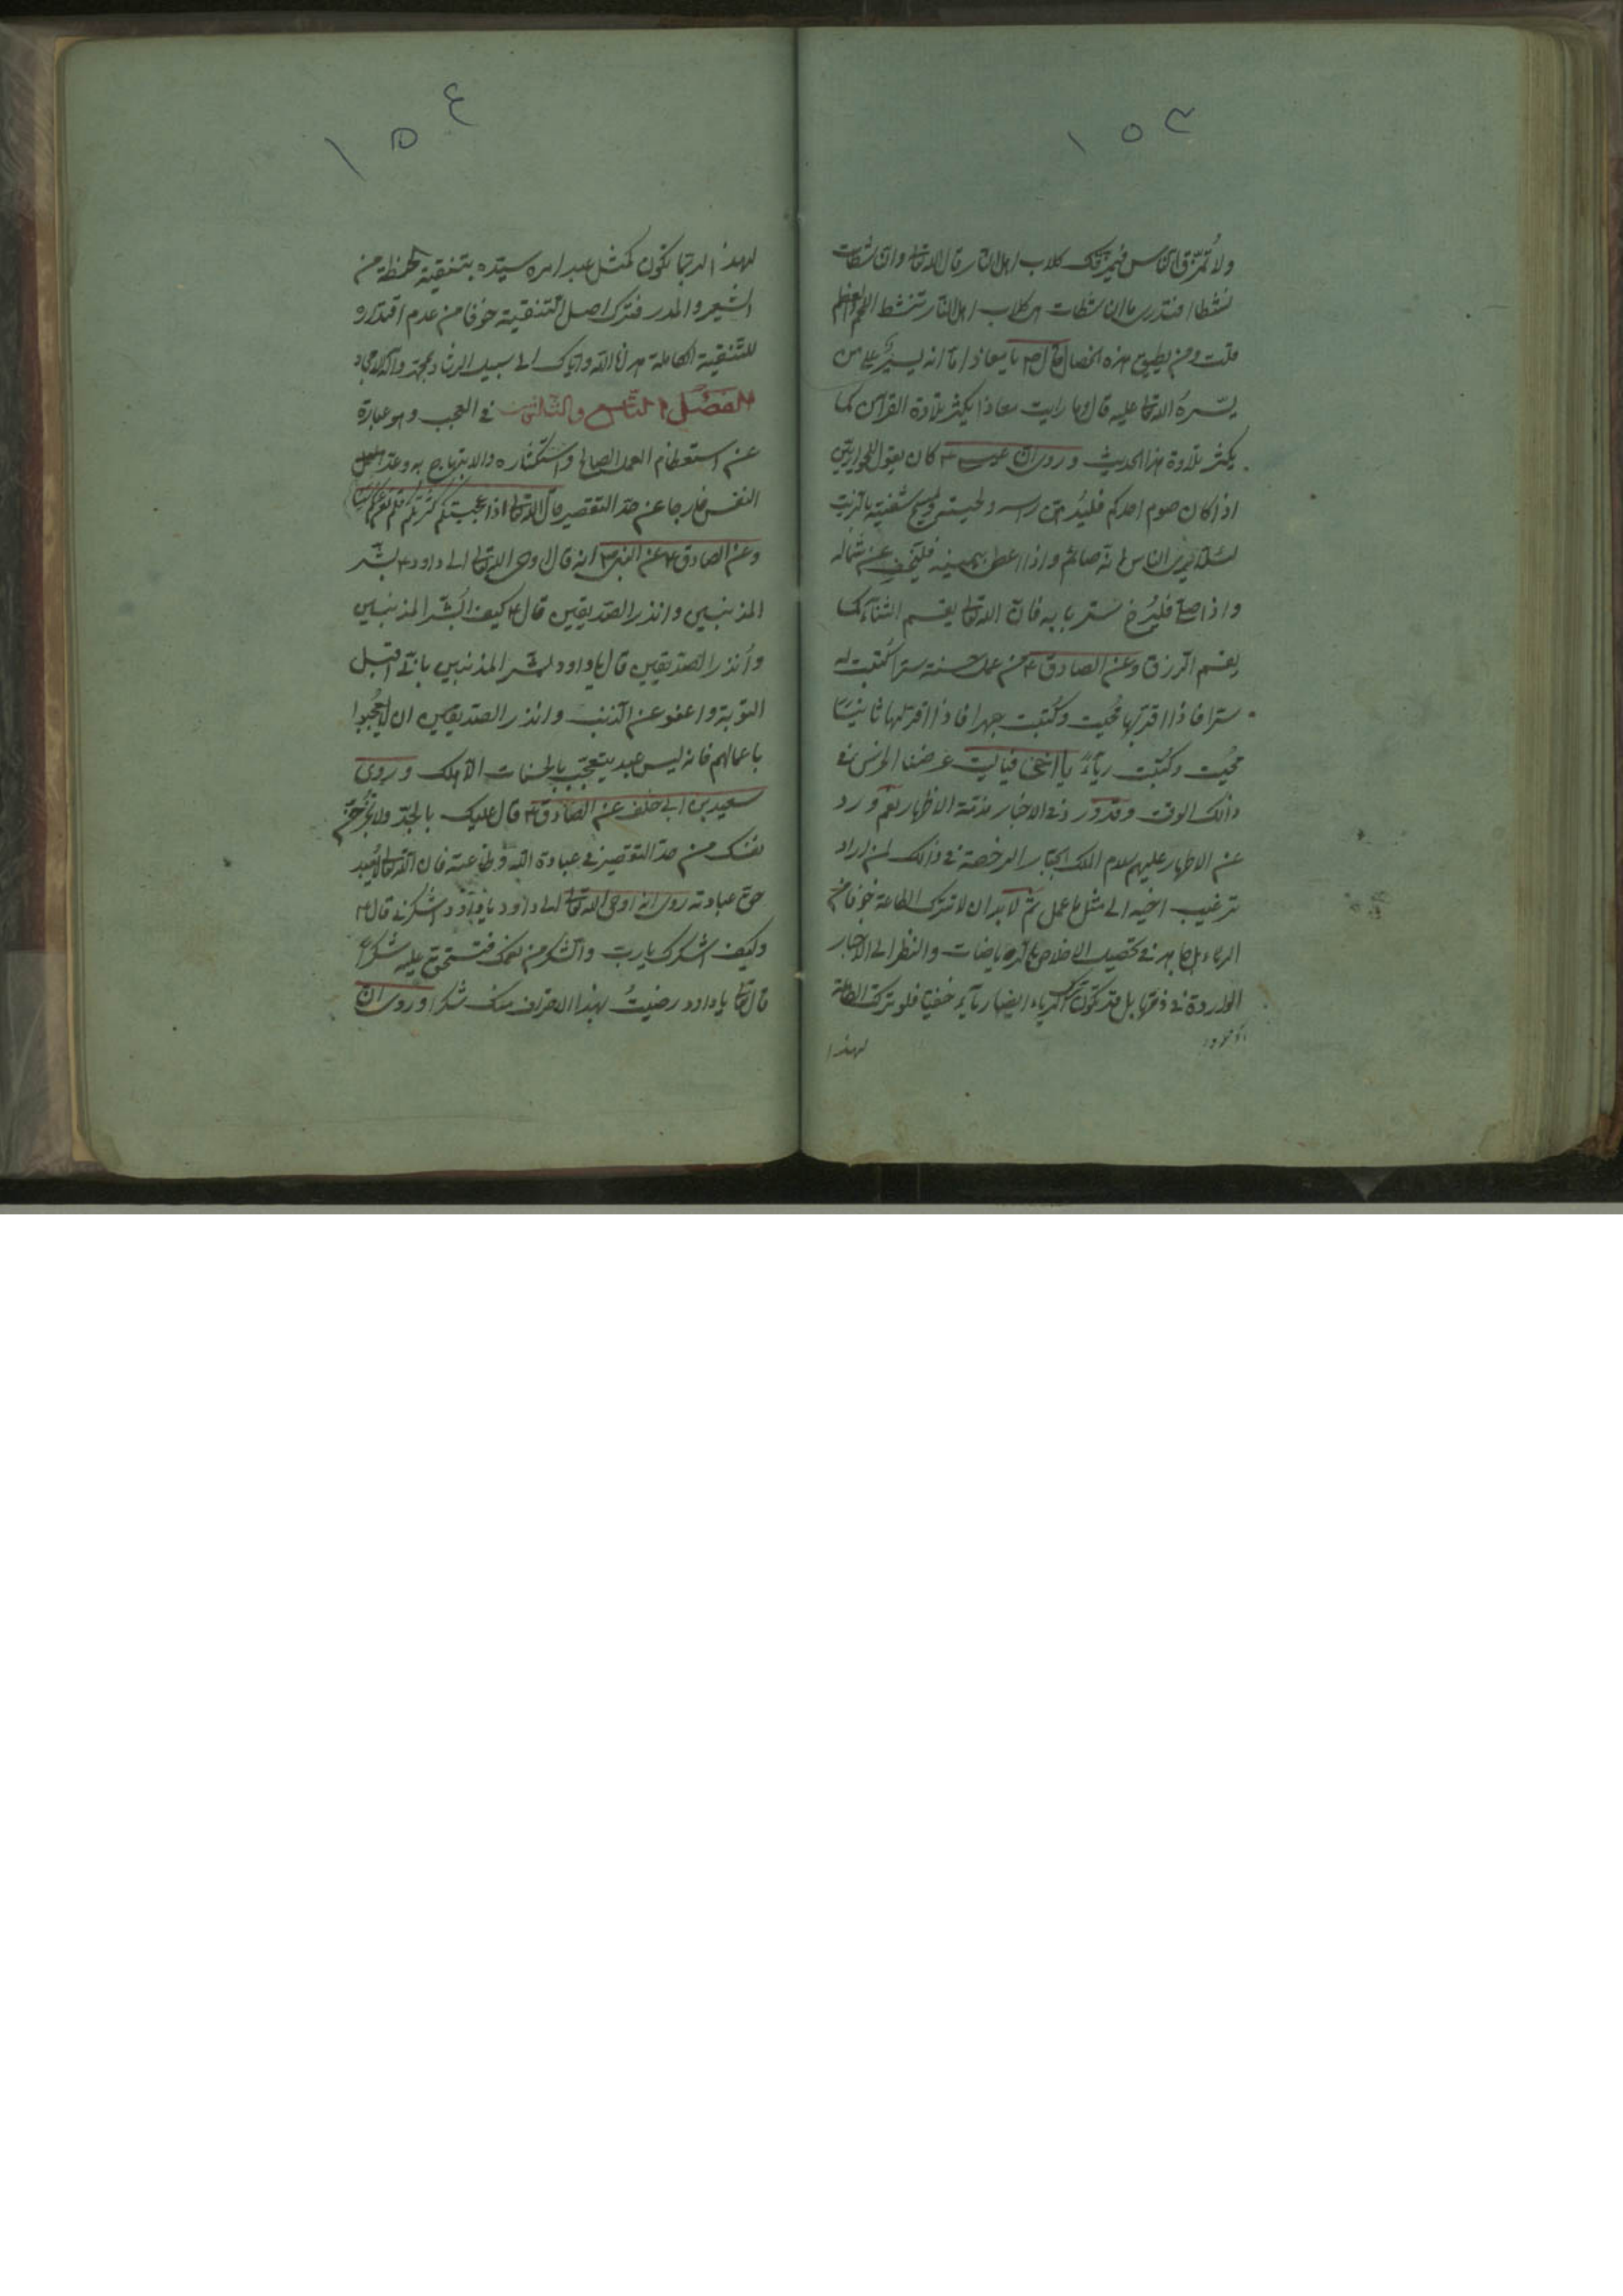 ١٥٣
ولا تمزق الناس فيمزقك كلاب اهل النار قال الله تعا والناشطات
نشطا افتدرى ما الناشطات هى كلاب اهل النار تنشط اللحم والعظم
قلت ومن يطيق هذه الخصال قال ص يا معاذ اما انه يسير على من
يسره الله تعا عليه قال وما رايت معاذا يكثر تلاوة القرآن كما
يكثر تلاوة هذا الحديث وروى ان عيسى ع كان يقول للحواريين
اذا كان صوم احدكم فليدهن راسه ولحيته وليمسح شفتيه بالزيت
لئلا يرى الناس انه صائم واذا اعطى بيمينه فليخف عن شماله
واذا صلى فليرخ ستر بابه فان الله تعا يقسم الثناء كما
يقسم الرزق وعن الصادق ع من عمل حسنة سترا كتبت له
سترا فاذا اقر بها محيت وكتبت جهرا فاذا اقر بها ثانيا
محيت وكتبت رياء يا اخى
ذالك الوقت وقد ورد فى الاخبار مذمة الاظهار نعم ورد
عن الاطهار عليهم سلام الملك الجبار الرخصة فى ذالك لمن اراد
ترغيب اخيه الى مثل ما عمل ثم لا بد ان لا تترك الطاعة خوفا من
الرياء بل جاهد فى تحصيل الاخلاص بالرياضات والنظر الى الاخبار
الواردة فى ذمها بل قد تكون ترك الرياء ايضا رياء خفيا فلو ترك الطاعة
لهذا
١٥٤
لهذا لربما تكون كمثل عبد امره سيده بتنقية الحنطة من
الشعير والمدر فترك اصل التنقية خوفا من عدم اقتداره
للتنقية الكاملة هدانا الله واياك الى سبيل الرشاد بمحمد وآله الامجاد
الفصل التاسع والثالثون فى العجب وهو عبارة
عن استعظام العمل الصالح واستكثاره والابتهاج به وعد
النفس خارجا عن حد التقصير قال الله تعا اذ اعجبتكم كثرتكم فلم تغن عنكم شيئا
وعن الصادق ع عن النبى ص انه قال اوحى الله تعا الى داود ع بشر
المذنبين وانذر الصديقين قال ع كيف ابشر المذنبين
وأنذر الصديقين قال يا داود بشر المذنبين بانى اقبل
التوبة واعفو عن الذنب وانذر الصديقين ان لا يعجبوا
باعمالهم فانه ليس عبد يتعجب بالحسنات الا هلك وروى
سعيد بن ابى خلف عن الصادق ع قال عليك بالجد ولا تخرجن
نفسك من حد التقصير فى عبادة الله وطاعته فان الله تعا لا يعبد
حق عبادته روى انه اوحى الله تعا الى داود يا داود اشكرنى قال ع
وكيف اشكرك يا رب والشكر من نعمك تستحق عليه شكرا
قال تعا يا داود رضيت بهذا الاعتراف منك شكرا وروى ان